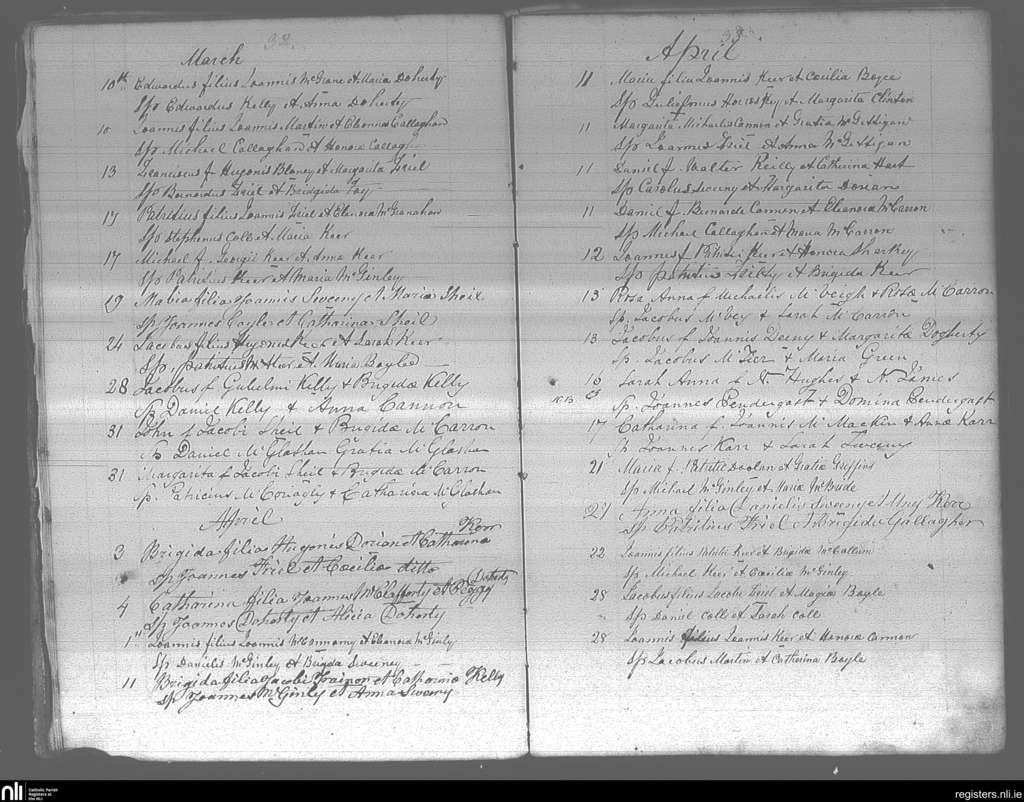 32.
March
10th Edwardus filius Ioannis McGrane et Maria Doherty
Sps Edwardus Kelly et Anna Doherty
10 Ioannis filius Ioannis Martin et Eleonora Callaghan
Sp Michael Callaghan et Honora Callagh
13 Franciscus f Hugonis Blaney et Margarita Friel
Sps Bernardus Friel et Bridgida Foy
17 Patricius filius Ioannis Friel et Elenora McGranahan
Sps Stephenus Coll et Maria Keer
17 Michael f. Georgii Keer et Anna Keer
Sps Patricius Keer et Maria McGinley
19 Maria filia Joannis Sweeny et Maria Sheil
Sp Joannes et Catharina Sheil
24 Jacobus filius Hugonis et Sarah Keer
Sp. Patritius Keer et Maria
28 Jacobus f Gulielmi Kelly & Brigidæ Kelly
Sp Daniel Kelly & Anna Cannon
31 John f Jacobi Sheil & Brigidæ McCarron
Sp Daniel McGlashan Gratia McGlashan
31 Margarita f Jacobi Sheil & Brigidæ McCarron
Sp. Patricius McConagly & Catharina McGlashan
April
Kerr
3 Brigida filia Hugonis Dorian et Catharina
Sp Joannes Friel et Cæcilia ditto
Doherty
4 Catharina filia Joannes McClafferty et Peggy
Sp Joannes Doherty et Alicia Doherty
Ioannis filius Ioannis et Elenora McGinly
Sp Danielis McGinley et Brigida Sweeney
11 Brigida filia Jacobi Trainor et Kelly
Sp Joannes McGinly et Anna Sweeny
33
April
11 Maria filia Ioannis Keer et Cæcilia Boyce
Sps et Margarita Clinton
11 Margarita Michaelis Cannon et Gratia McGettigan
Sps Ioannes Friel et Anna McGettigan
11 Daniel f. Walter Reilly et Catherina Hart
Sps Carolus Sweeny et Margarita Dorian
11 Daniel f. Bernarde Cannon et Elianora McCarron
Sps Michael Callaghan et Maria McCarron
12 Ioannes f Patricii Keer et Honora Sharkey
Sps Patricius et Brigida Keer
13 Rosa Anna f Michaelis McVeigh & Rosæ McCarron
Sp. Jacobus McVey & Sarah McCarron
13 Jacobus f Ioannis Deeny & Margarita Dogherty
Sp. Jacobus & Maria Green
Sarah Anna f N. Hughes & N.
Sp. Joannes Pendergast & Domina Pendergast
17 Catharina f. Joannis McMackin & Annæ Karr
Sp Joannes Karr & Sarah
21 Maria f. Patritii Doolan et Gratiæ Griffins
Sps Michael McGinley et Maria McBride
21 Anna filia Danielis Sweeny et Kerr
Sp Patritius Friel et Brigida Gallagher
22 Ioannis filius Patritii Keer et Brigida McCallum
Sps Michael Keer et Cæcilia McGinley
28 Iacobus filius Iacobi Friel et Magræ Boyle
Sps Daniel Coll et Sarah Coll
28 Ioannis filius Ioannis Keer et Honora Cannon
Sps Iacobus Martin et Catherina Boyle
nli Catholic Parish Registers at the NLI
registers.nli.ie